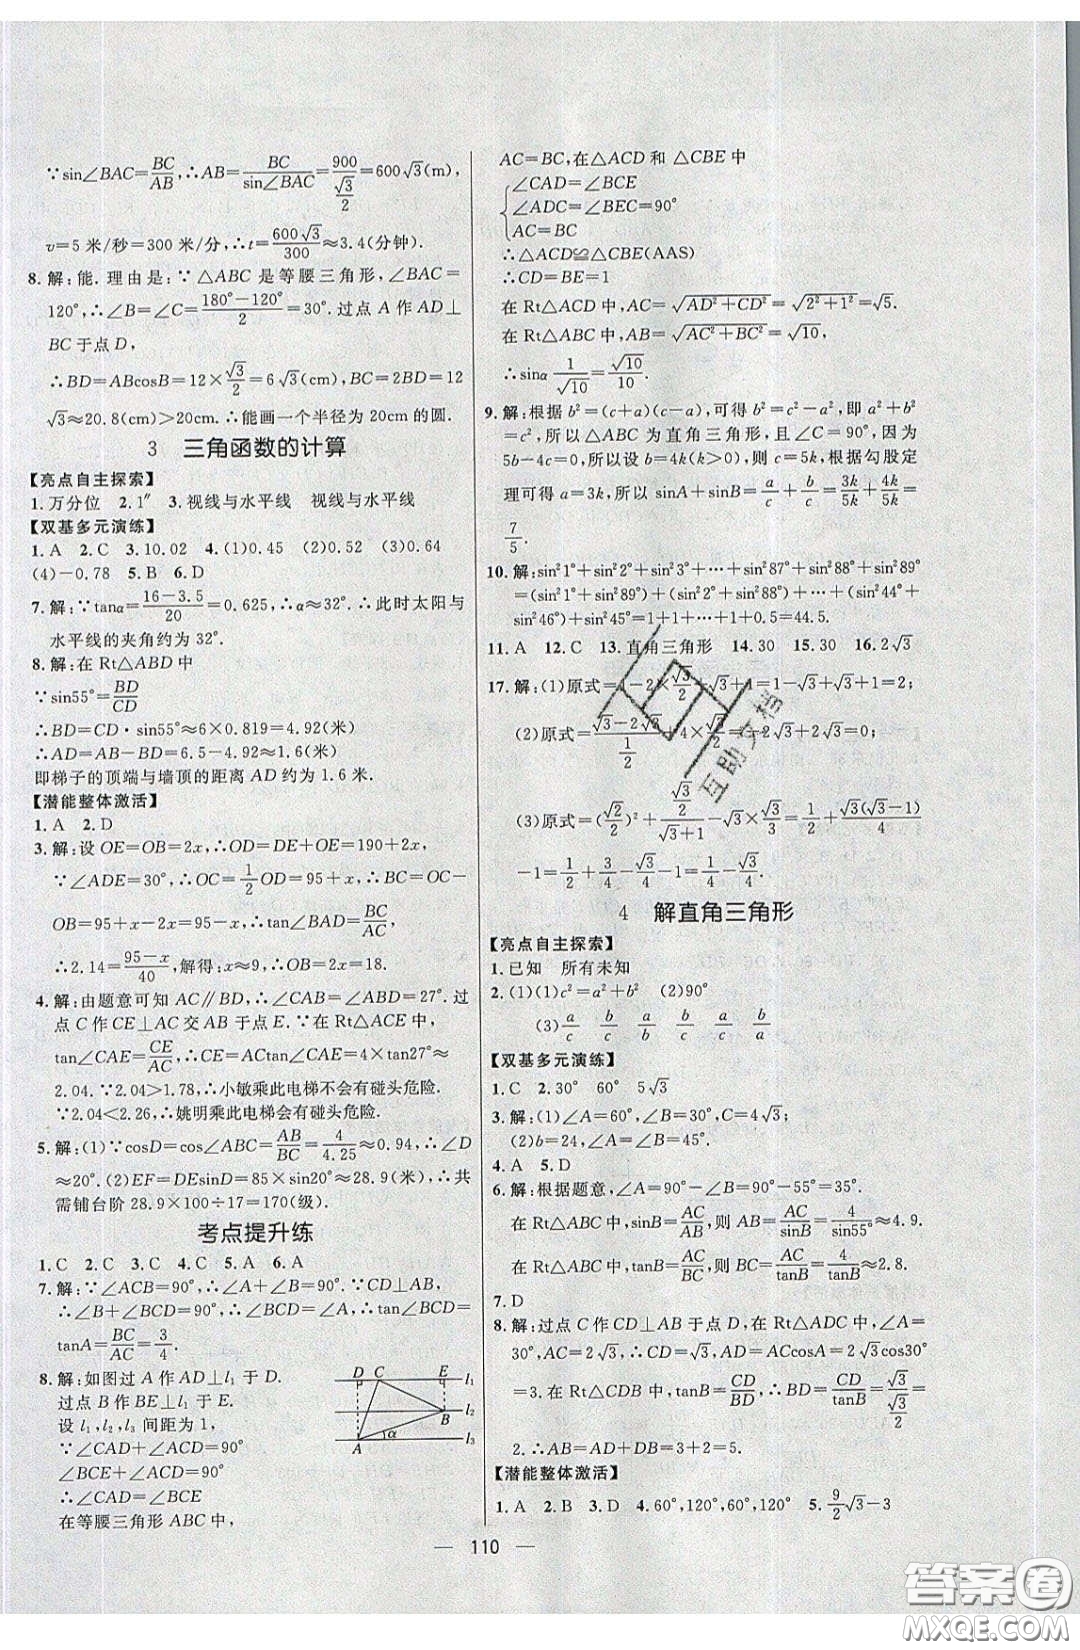 ∵sin∠BAC=BC/AB,∴AB=BC/sin∠BAC=900/(√3/2)=600√3(m),
v=5米/秒=300米/分,∴t=600√3/300≈3.4(分钟).
8.解:能.理由是:∵△ABC是等腰三角形,∠BAC=
120°,∴∠B=∠C=(180°-120°)/2=30°.过点A作AD⊥
BC于点D,
∴BD=ABcosB=12×√3/2=6√3(cm),BC=2BD=12
√3≈20.8(cm)>20cm.∴能画一个半径为20cm的圆.
3 三角函数的计算
【亮点自主探索】
1.万分位 2.1″ 3.视线与水平线 视线与水平线
【双基多元演练】
1.A 2.C 3.10.02 4.(1)0.45 (2)0.52 (3)0.64
(4)-0.78 5.B 6.D
7.解:∵tanα=(16-3.5)/20=0.625,∴α≈32°.∴此时太阳与
水平线的夹角约为32°.
8.解:在Rt△ABD中
∵sin55°=BD/CD
∴BD=CD·sin55°≈6×0.819=4.92(米)
∴AD=AB-BD=6.5-4.92≈1.6(米)
即梯子的顶端与墙顶的距离AD约为1.6米.
【潜能整体激活】
1.A 2.D
3.解:设OE=OB=2x,∴OD=DE+OE=190+2x,
∵∠ADE=30°,∴OC=1/2OD=95+x,∴BC=OC-
OB=95+x-2x=95-x,∴tan∠BAD=BC/AC,
∴2.14=(95-x)/40,解得:x≈9,∴OB=2x=18.
4.解:由题意可知AC∥BD,∴∠CAB=∠ABD=27°.过
点C作CE⊥AC交AB于点E.∵在Rt△ACE中,
tan∠CAE=CE/AC,∴CE=ACtan∠CAE=4×tan27°≈
2.04.∵2.04>1.78,∴小敏乘此电梯不会有碰头危险.
∵2.04<2.26,∴姚明乘此电梯会有碰头危险.
5.解:(1)∵cosD=cos∠ABC=AB/BC=4/4.25≈0.94,∴∠D
≈20°.(2)EF=DEsinD=85×sin20°≈28.9(米),∴共
需铺台阶28.9×100÷17=170(级).
考点提升练
1.C 2.C 3.C 4.C 5.A 6.A
7.解:∵∠ACB=90°,∴∠A+∠B=90°.∵CD⊥AB,
∴∠B+∠BCD=90°,∴∠BCD=∠A,∴tan∠BCD=
tanA=BC/AC=3/4.
8.解:如图过点A作AD⊥l₁于D.
过点B作BE⊥l₁于E.
设l₁,l₂,l₃间距为1,
∵∠CAD+∠ACD=90°
∠BCE+∠ACD=90°
∴∠CAD=∠BCE
在等腰三角形ABC中,
D C E l₁
B l₂
A α l₃
AC=BC,在△ACD和△CBE中
∠CAD=∠BCE
∠ADC=∠BEC=90°
AC=BC
∴△ACD≌△CBE(AAS)
∴CD=BE=1
在Rt△ACD中,AC=√(AD²+CD²)=√(2²+1²)=√5.
在Rt△ABC中,AB=√(AC²+BC²)=√10,
∴sinα 1/√10=√10/10.
9.解:根据b²=(c+a)(c-a),可得b²=c²-a²,即a²+b²
=c²,所以△ABC为直角三角形,且∠C=90°,因为
5b-4c=0,所以设b=4k(k>0),则c=5k,根据勾股定
理可得a=3k,所以sinA+sinB=a/c+b/c=3k/5k+4k/5k=
7/5.
10.解:sin²1°+sin²2°+sin²3°+…+sin²87°+sin²88°+sin²89°
=(sin²1°+sin²89°)+(sin²2°+sin²88°)+…+(sin²44°+
sin²46°)+sin²45°=1+1+…+1+0.5=44.5.
11.A 12.C 13.直角三角形 14.30 15.30 16.2√3
17.解:(1)原式=1-2×√3/2+√3+1=1-√3+√3+1=2;
(2)原式=(√3-2√3)/(1/2)+4×√3/2=-2√3+2√3=0;
(3)原式=(√2/2)²+(√3/2)/(√3+1)-√3×√3/3=1/2+√3(√3-1)/4
-1=1/2+3/4-√3/4-1=1/4-√3/4.
4 解直角三角形
【亮点自主探索】
1.已知 所有未知
2.(1)(1)c²=a²+b² (2)90°
(3)a/c b/c b/c a/c a/b b/a
【双基多元演练】
1.C 2.30° 60° 5√3
3.解:(1)∠A=60°,∠B=30°,C=4√3;
(2)b=24,∠A=∠B=45°.
4.A 5.D
6.解:根据题意,∠A=90°-∠B=90°-55°=35°.
在Rt△ABC中,sinB=AC/AB,则AB=AC/sinB=4/sin55°≈4.9.
在Rt△ABC中,tanB=AC/BC,则BC=AC/tanB=4/tanB≈2.8.
7.D
8.解:过点C作CD⊥AB于点D,在Rt△ADC中,∠A=
30°,AC=2√3,∴CD=√3,AD=ACcosA=2√3×√3/2
=3.在Rt△CDB中,tanB=CD/BD,∴BD=CD/tanB=√3/(√3/2)=
2.∴AB=AD+DB=3+2=5.
【潜能整体激活】
1.A 2.B 3.D 4.60°,120°,60°,120° 5.9/2√3-3
— 110 —
互助文档
答案圈
MXQE.COM